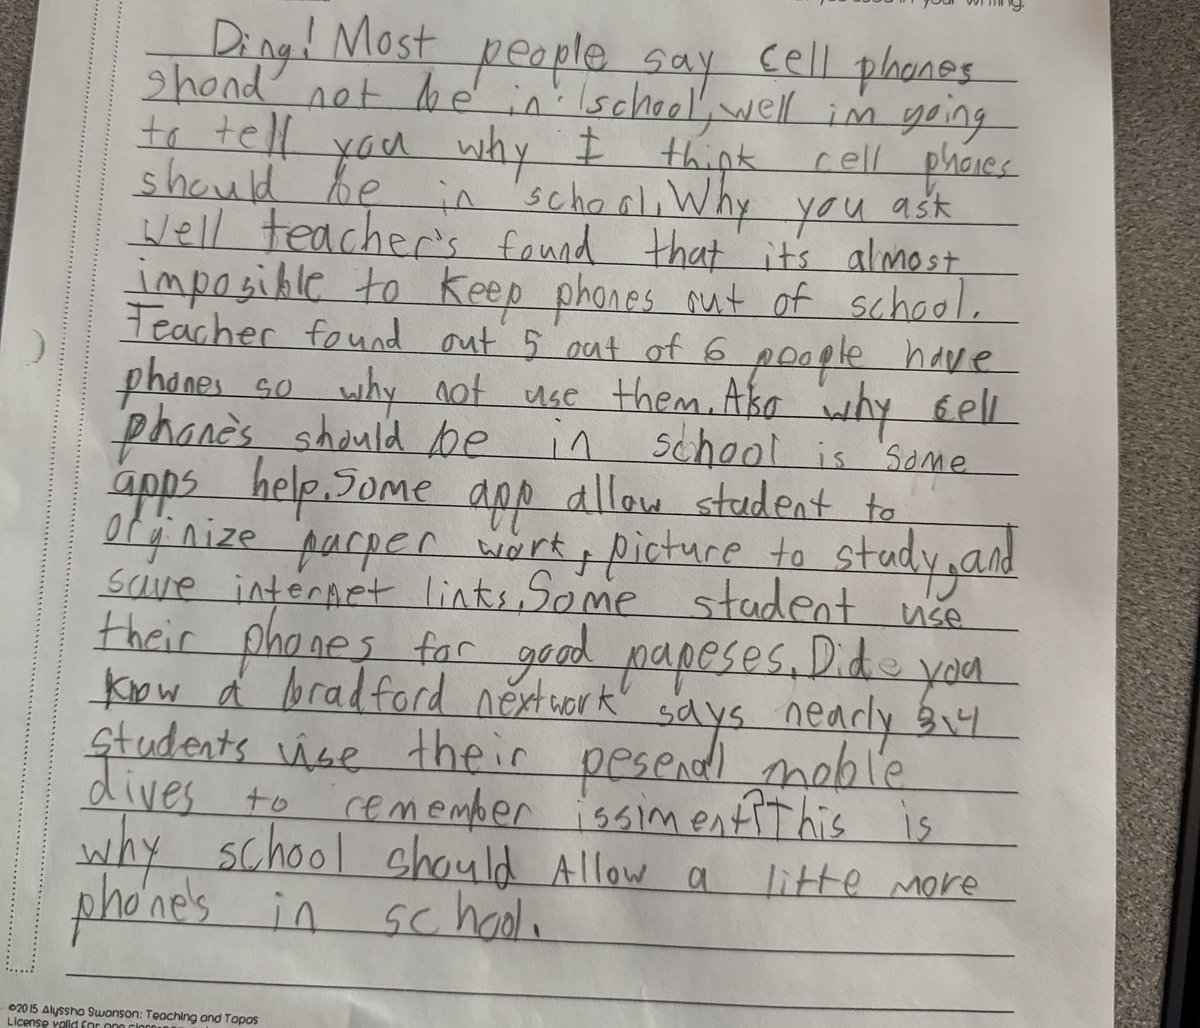 in your writing.
Ding! Most people say cell phones
shond not be in school, well im going
to tell you why I think cell phones
should be in school. Why you ask
Well teacher's found that its almost
imposible to keep phones out of school.
Teacher found out 5 out of 6 poople have
phones so why not use them. Also why cell
phone's should be in school is some
apps help. Some app allow student to
orginize parper work, picture to study, and
save internet links. Some student use
their phones for good papeses. Dide you
know a bradford nextwork says nearly 3.4
students use their pesenal moble
dives to remember issiment? This is
why school should Allow a litte more
phone's in school.
©2015 Alyssha Swanson: Teaching and Tapas
License valid for one